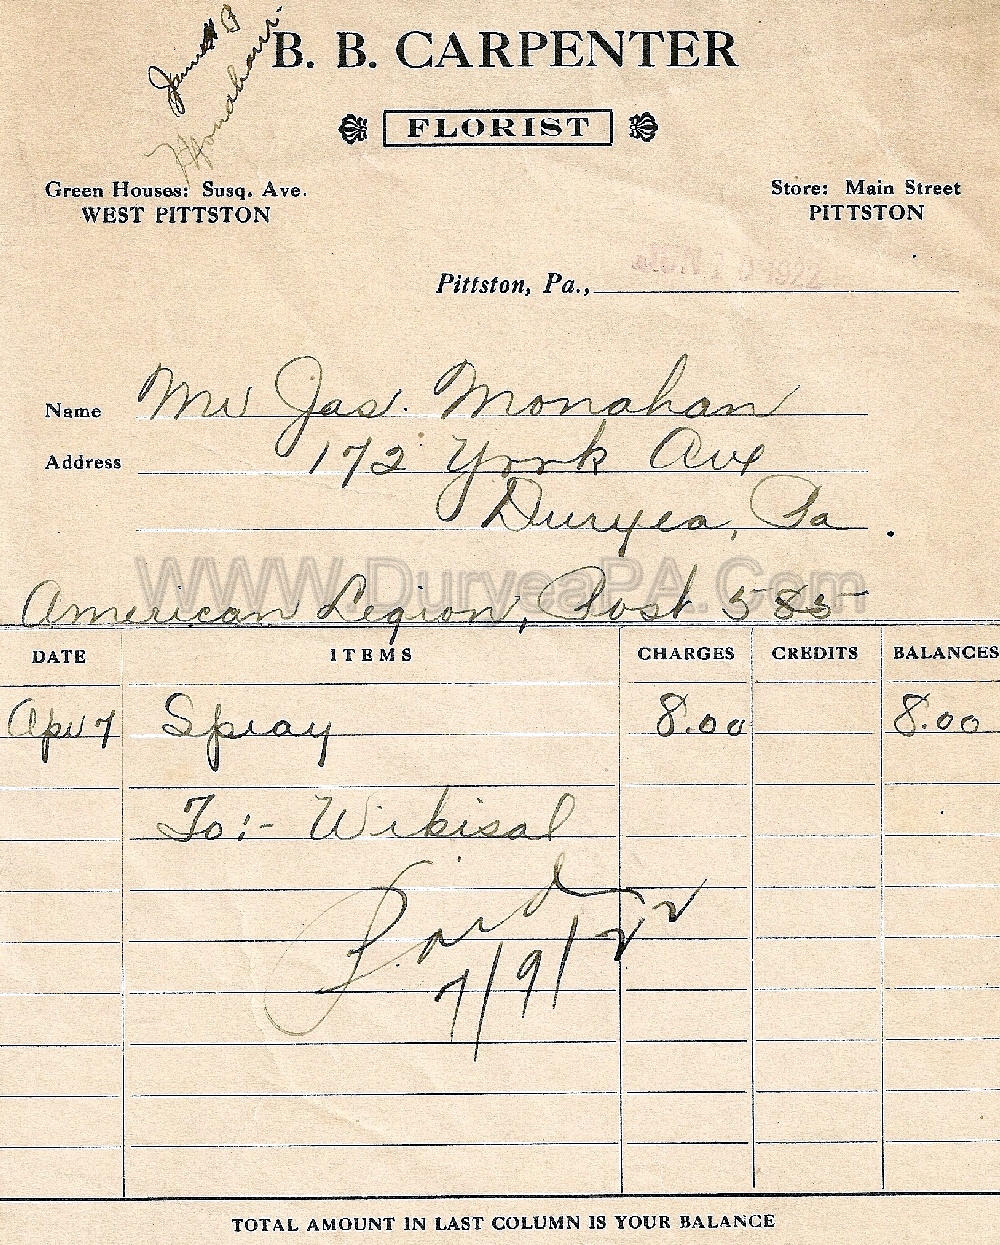 B. B. CARPENTER
FLORIST
Monahan
Green Houses: Susq. Ave.
WEST PITTSTON
Store: Main Street
PITTSTON
Pittston, Pa., 1922
Name Mr Jas. Monahan
Address 172 York Ave
Duryea, Pa.
WWW.DuryeaPA.Com
American Legion, Post 585
DATE ITEMS CHARGES CREDITS BALANCES
Apr 7 Spray 8.00 8.00
To:- Wikisal
7/9/22
TOTAL AMOUNT IN LAST COLUMN IS YOUR BALANCE